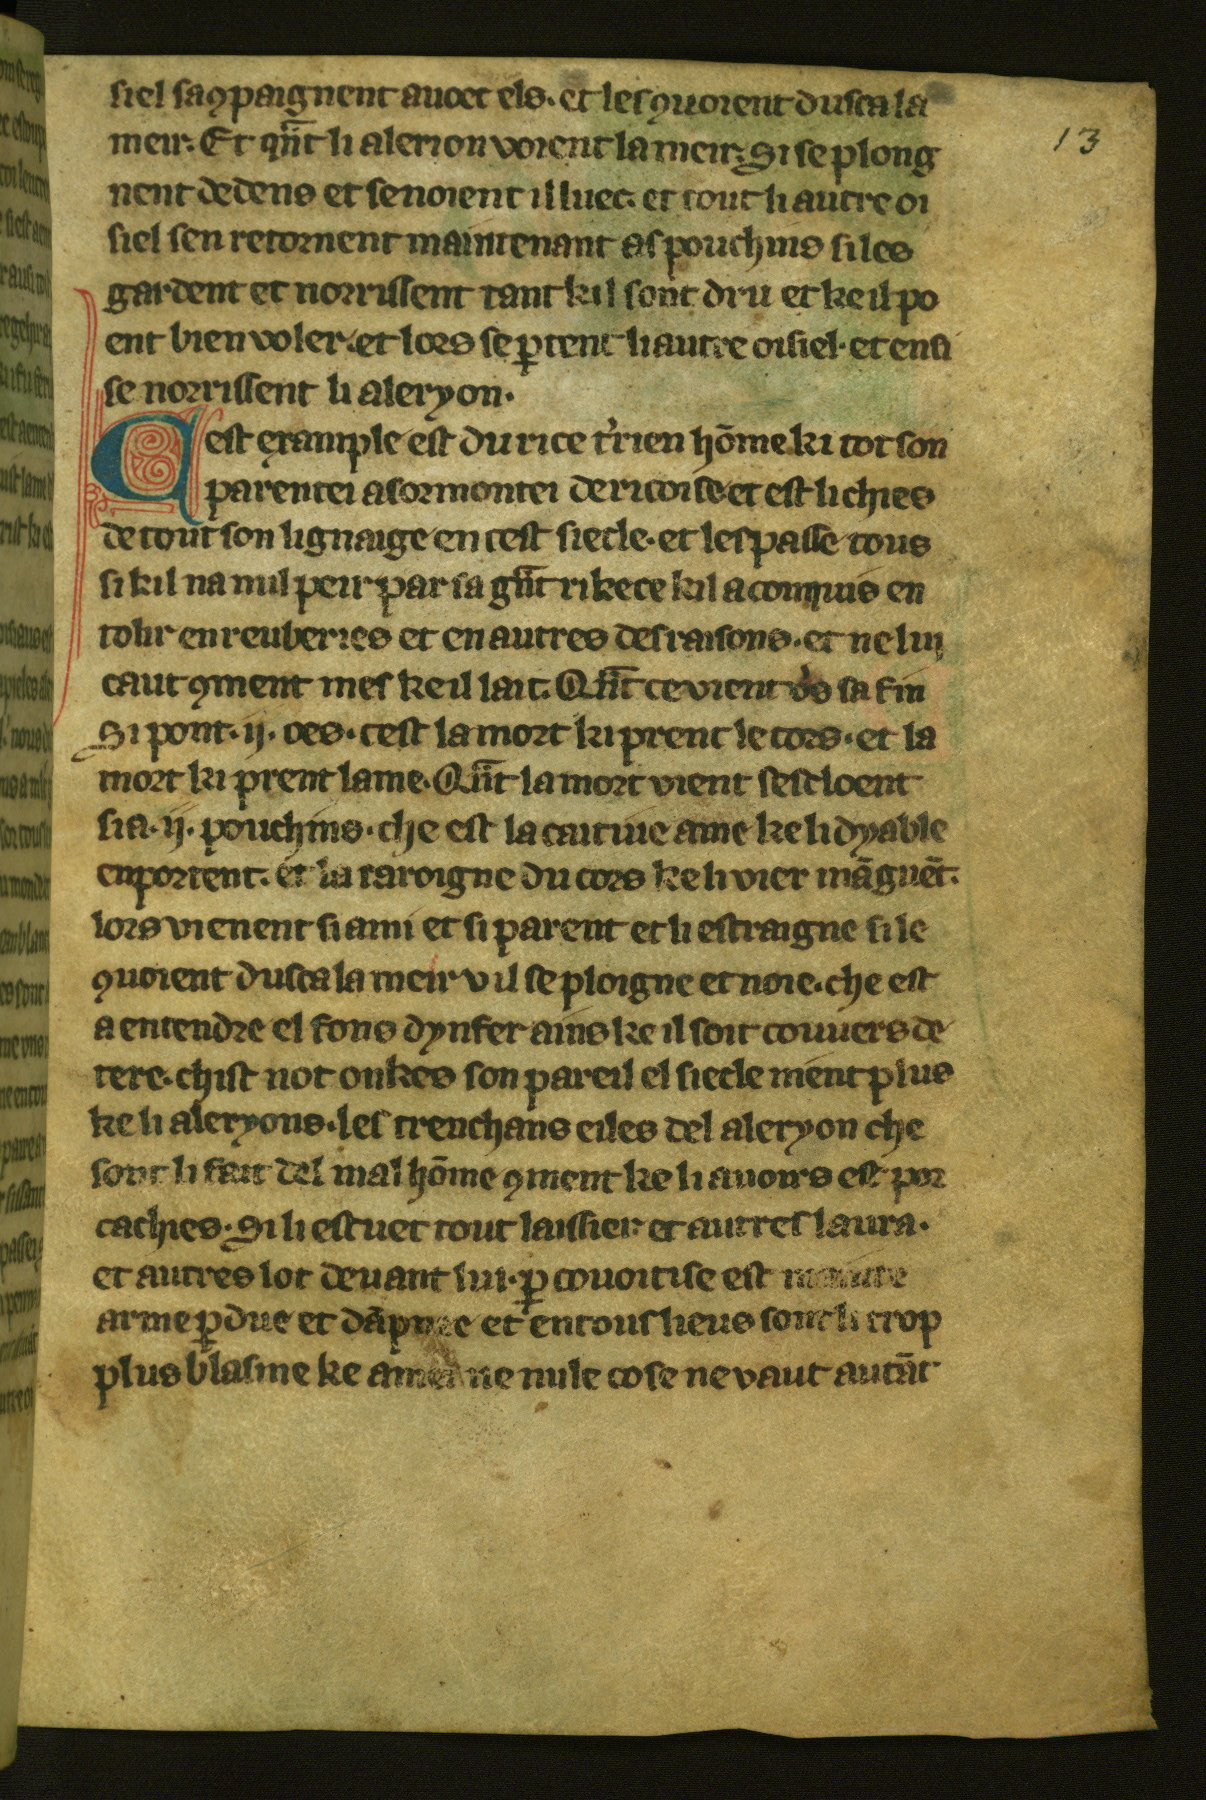 siel saꝯpaignent auoec els. et les ꝯuoient dusca la
13
meir. Et qn̄t li alerion voient la meir. Si se plong
nent dedens et se noient illuec. et tout li autre oi
siel sen retornent maintenant as pouchins si les
gardent et norrissent tant kil sont dru et ke il po
ent bien voler. et lors se ꝑtent li autre oisiel. et ensi
se norrissent li aleryon.
Cest example est du rice t'rien hōme ki tot son
parentei a sormontei de ricoise. et est li chies
de tout son lignaige en cest siecle. et les passe tous
si kil na nul peir par sa gn̄t rikece kil a conquis en
tolir en reuberies et en autres desraisons. et ne lui
caut ꝯment mes ke il lait. Qn̄t ce vient v's sa fin
Si pont .ij. oes. cest la mort ki prent le cors. et la
mort ki prent lame. Qn̄t la mort vient sescloent
si a .ij. pouchins. che est la caitiue ame ke li dyable
enportent. et la caroigne du cors ke li vier māguēt.
lors vienent si ami et si parent et li estraigne si le
ꝯuoient dusca la meir v il se ploigne et noie. che est
a entendre el fons dynfer ains ke il soit couuers de
tere. chist not onkes son pareil el siecle nient plus
ke li aleryons. les trenchans eiles del aleryon che
sont li fait del mal hōme ꝯment ke li auoirs est por
cachies. Si li estuet tout laissier et autres laura.
et autres lot deuant lui. ꝑ couoitise est
arme ꝑdue et et en tous lieus sont li trop
plus blasme ke ne nule cose ne vaut autāt